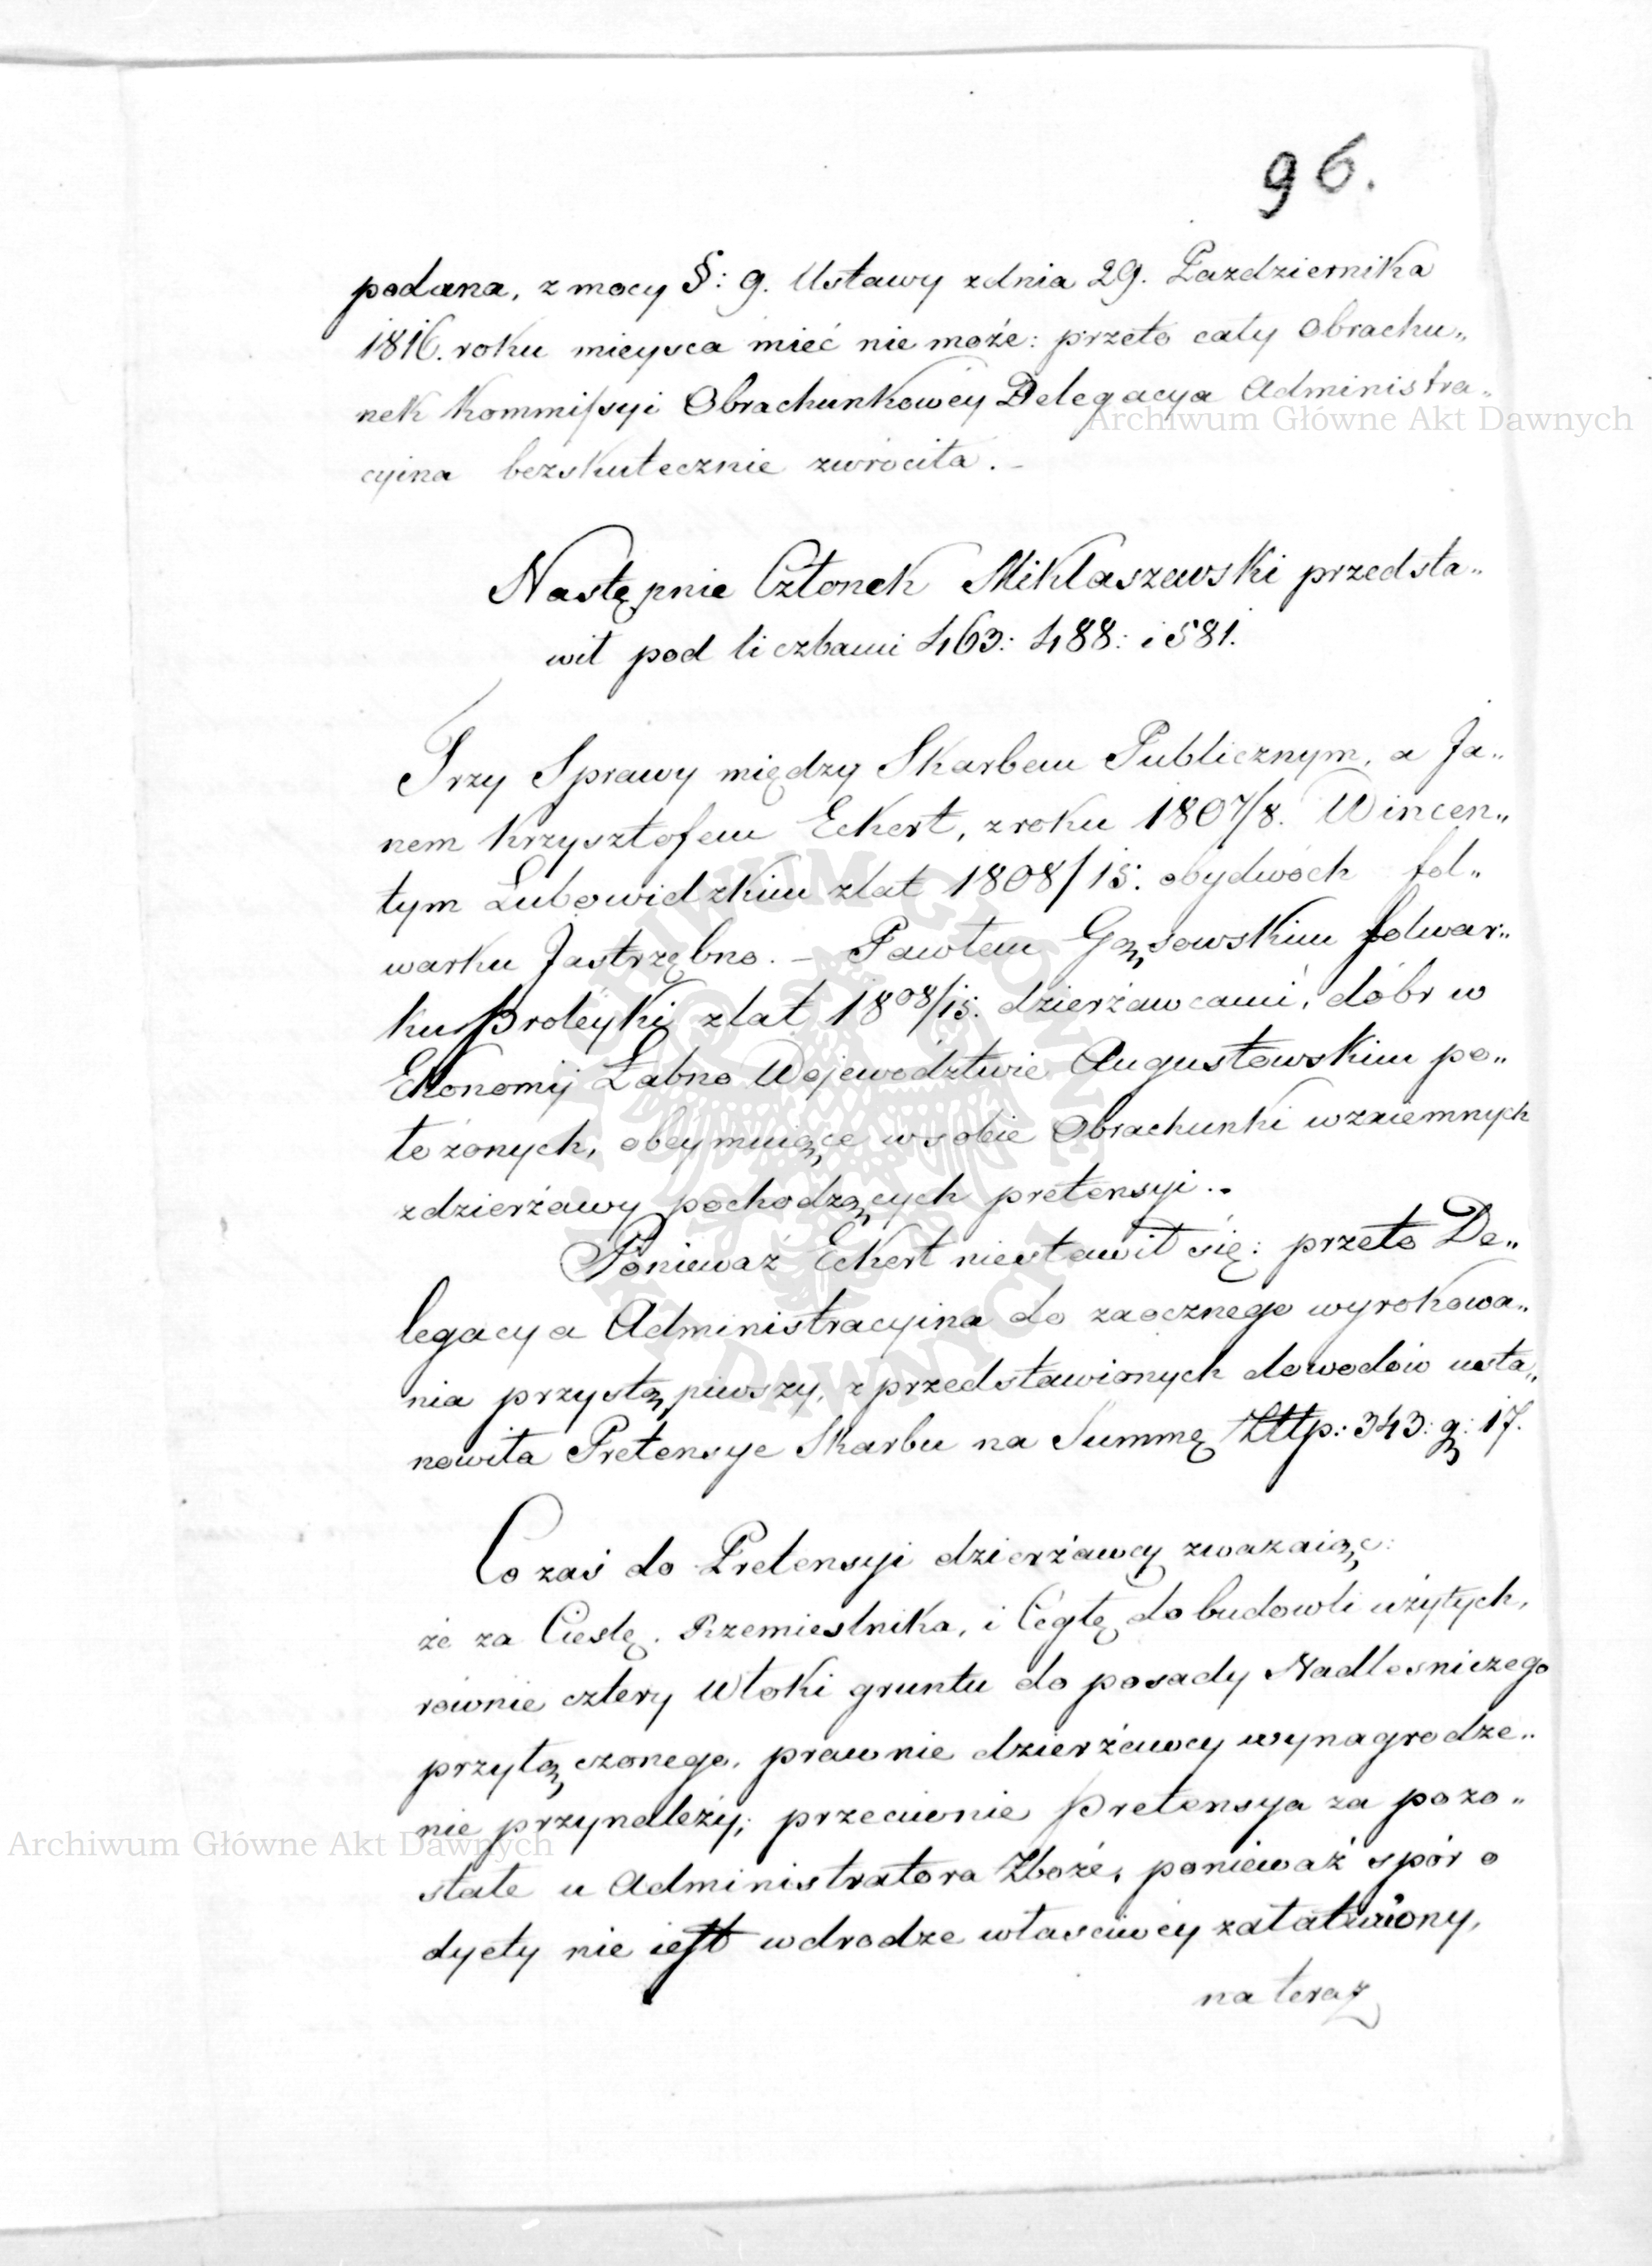 96.
podana, z mocy §: 9. Ustawy z dnia 29. Pazdziernika
1816. roku mieysca mieć nie może: przeto cały Obrachu„
nek Kommissyi Obrachunkowéy Delegacya Administra„
cyina bezskutecznie zwróciła. –
Następnie Członek Miklaszewski przedsta„
wił pod liczbami 463: 488: i 581.
Trzy Sprawy między Skarbem Publicznym, a Ja„
nem Krzysztofem Eckert, z roku 1807/8. Wincen„
tym Lubowidzkim z lat 1808/15. obydwóch fol„
warku Jastrzębno. – Pawłem Gąsowskim folwar„
ku z lat 1808/15. dzierżawcami, dóbr w
Ekonomij Łabno Województwie Augustowskim po„
łożonych, obeymuiące w sobie Obrachunki wzaiemnych
z dzierżawy pochodzących pretensyi. –
Ponieważ Eckert niestawił się: przeto De„
legacya Administracyina do zaocznego wyrokowa„
nia przystąpiwszy, z przedstawionych dowodów usta„
nowiła Pretensye Skarbu na Summę Złłp: 343: g: 17.
Co zaś do Pretensyi dzierżawcy zważaiąc:
że za Cieslę, Rzemieslnika, i Cégłę do budowli użytych,
równie cztery Włoki gruntu do posady Nadlesniczego
przyłączonego, prawnie dzierżawcy wynagrodze„
nie przynależy; przeciwnie pretensya za pozo„
stałe u Administratora Zboże, ponieważ spór o
dyety nie iest w drodze własciwéy załatwiony,
na teraz
Archiwum Główne Akt Dawnych
Archiwum Główne Akt Dawnych
ARCHIWUM GŁÓWNE AKT DAWNYCH